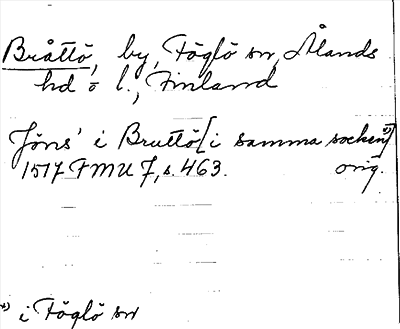 Bråttö, by, Föglö sn, Ålands
hd o l., Finland
Jöns' i Bruttö [i samma socken*)]
1517 FMU 7, s. 463. orig.
*) i Föglö sn